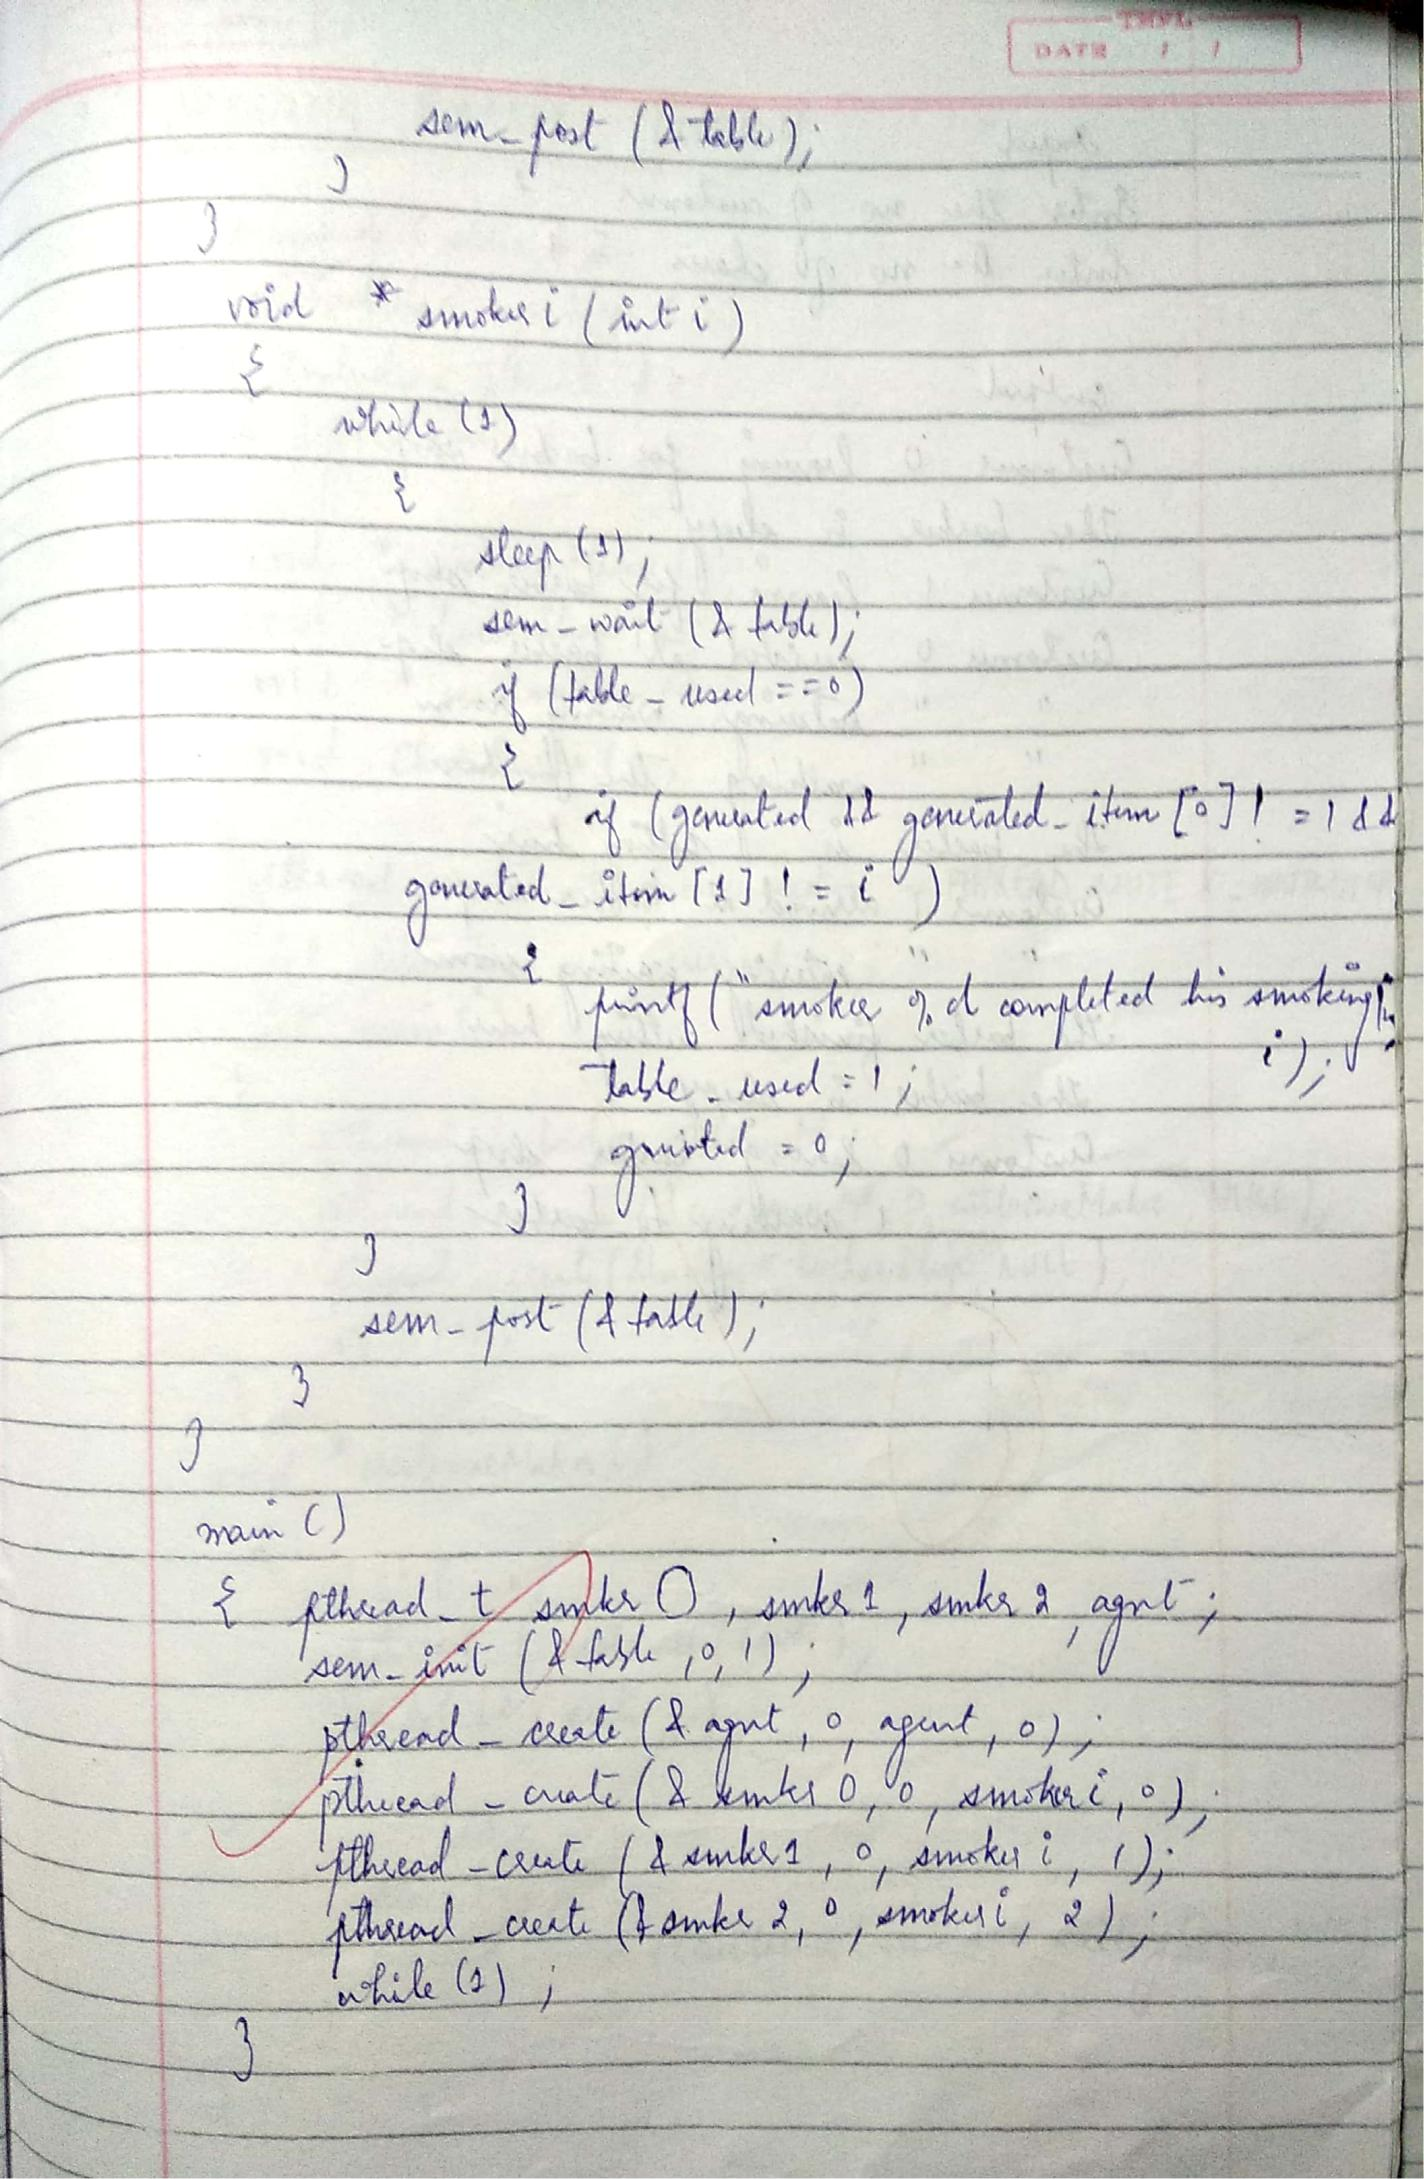 THPL
DATE / /
sem_post (&table);
}
}
void * smokeri (int i)
{
while (1)
{
sleep (1);
sem_wait (&table);
if (table_used ==0)
{
if (generated && generated_item [0] ! = 1 &&
generated_item [1] ! = i )
{
printf ("smoker %d completed his smoking\n",
i);
table_used = 1;
gnirted = 0;
}
}
sem_post (&table);
}
}
main ()
{ pthread_t smkr 0, smkr 1, smkr 2, agnt;
sem_init (&table, 0, 1);
pthread_create (& agnt, 0, agent, 0);
pthread_create (& smkr 0, 0, smokeri, 0);
pthread_create (& smkr 1, 0, smokeri, 1);
pthread_create (& smkr 2, 0, smokeri, 2);
while (1);
}